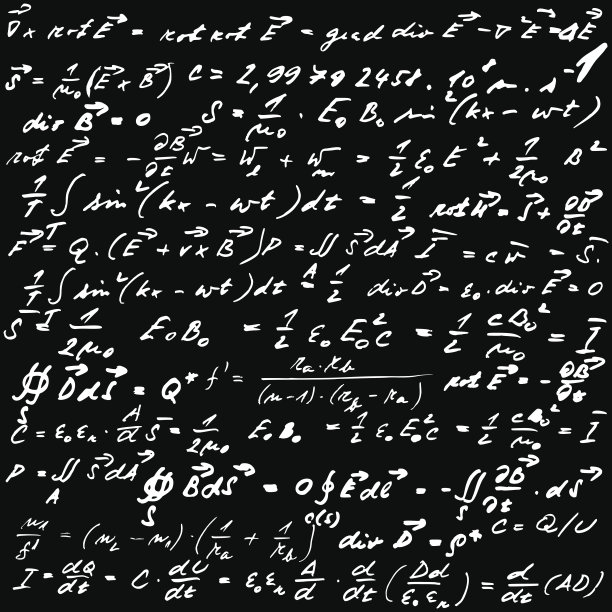 ∇⃗ × rot E⃗ = rot rot E⃗ = grad div E⃗ - ∇⃗² E⃗ = -ΔE⃗
S⃗ = 1/μ₀ (E⃗ × B⃗) c = 2,99792458 · 10⁸ m · s⁻¹
div B⃗ = 0 S = 1/μ₀ · E₀ B₀ sin² (kx - wt)
rot E⃗ = - ∂B⃗/∂t W = W + Wₘ = 1/2 ε₀ E² + 1/2μ₀ B²
1/T ∫ sin² (kx - wt) dt = 1/2 rot H⃗ = S⃗ + ∂D⃗/∂t
F⃗ = Q · (E⃗ + v⃗ × B⃗) P = ∬ S⃗ dA⃗ I = c w = S.
1/T ∫ᵀ sin² (kx - wt) dt = 1/2 div D⃗ = ε₀ · div E⃗ = 0
S = I = 1/2μ₀ E₀ B₀ = 1/2 ε₀ E₀² c = 1/2 c B₀²/μ₀ = I
∯ D⃗ dS⃗ = Q* f' = rₐ · r_b / (n-1) · (r_b - rₐ) rot E⃗ = - ∂B⃗/∂t
S
C = ε₀ εᵣ · A/d S = 1/2μ₀ E₀ B₀ = 1/2 ε₀ E₀² c = 1/2 c B₀²/μ₀ = I
P = ∬ S⃗ dA⃗ ∯ B⃗ dS⃗ = 0 ∮ E⃗ dl⃗ = - ∬ ∂B⃗/∂t · dS⃗
A S O(S) S
n₁/f' = (n₂ - n₁) · (1/rₐ + 1/r_b) div D⃗ = ρ* C = Q/U
I = dQ/dt = C · dU/dt = ε₀ εᵣ A/d · d/dt (Dd/ε₀ εᵣ) = d/dt (AD)